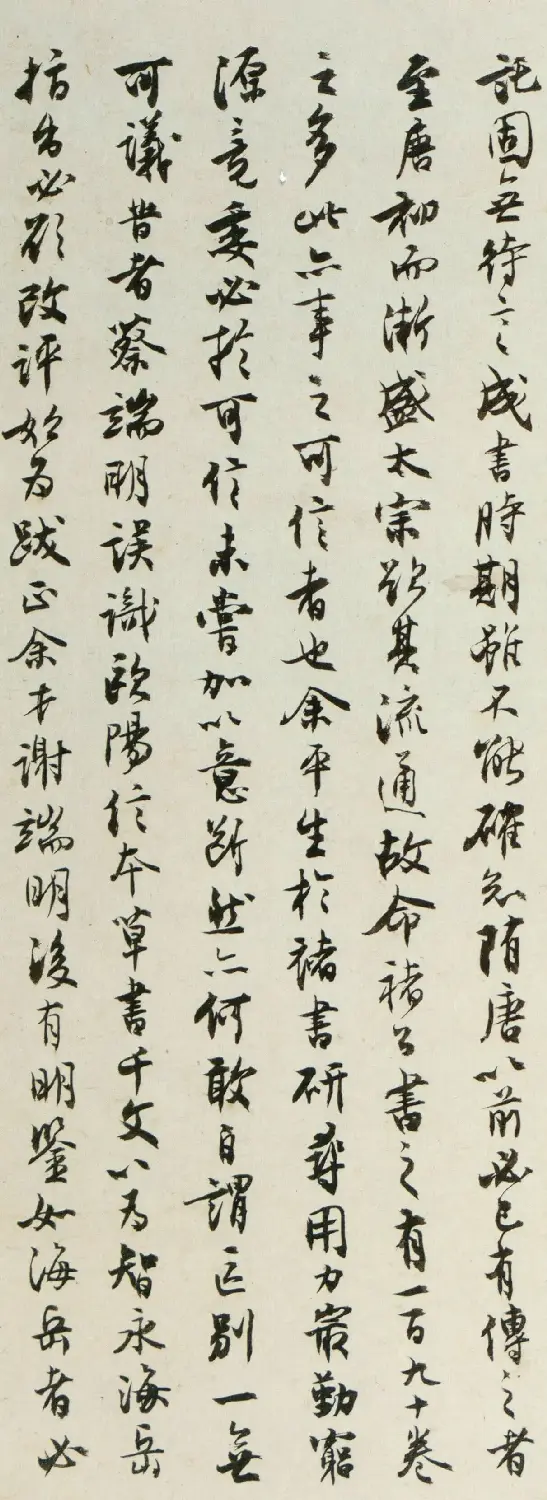 託固無待言成書時期雖不能確知隋唐以前必已有傳之者
至唐初而漸盛太宗欲其流通故命褚公書之有一百九十卷
之多此亦事之可信者也余平生於褚書研尋用力最勤窮
源竟委必於可信未嘗加以意斷然亦何敢自謂區別一無
可議昔者蔡端明誤識歐陽信本草書千文以為智永海岳
指出必欲改評始為跋正余方謝端明後有明鑒如海岳者必